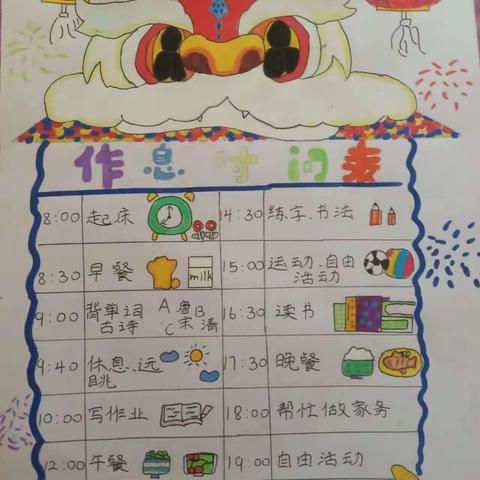 作息时间表
8:00 起床 14:30 练字、书法
8:30 早餐 milk 15:00 运动、自由活动
9:00 背单词 古诗 A唐B宋C清 16:30 读书
9:40 休息、远眺 17:30 晚餐
10:00 写作业 18:00 帮忙做家务
12:00 午餐 19:00 自由活动